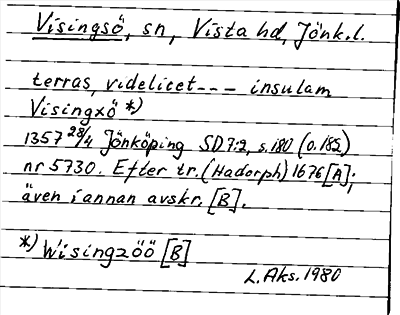 Visingsö, sn, Vista hd, Jönk.l.
terras, videlicet --- insulam
Visingxö *)
1357 28/4 Jönköping SD 7:2, s.180 (o.182)
nr 5730. Efter tr. (Hadorph) 1676 [A];
även i annan avskr. [B].
*) Wisingzöö [B]
L. Aks. 1980